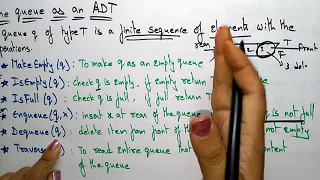 The queue as an ADT
queue q of type T is a finite sequence of elements with the
operations.
rear
T
Front
3 dele
* MakeEmpty (q) : To make q as an empty queue
* IsEmpty (q) : check q is empty, if empty return T
* IsFull (q) : check q is full, if full return T
* Enqueue (q, x) : insert x at rear of the queue q is not full
* Dequeue (q) : delete item from front of the not empty
* Traverse : To read entire queue that content
of the queue